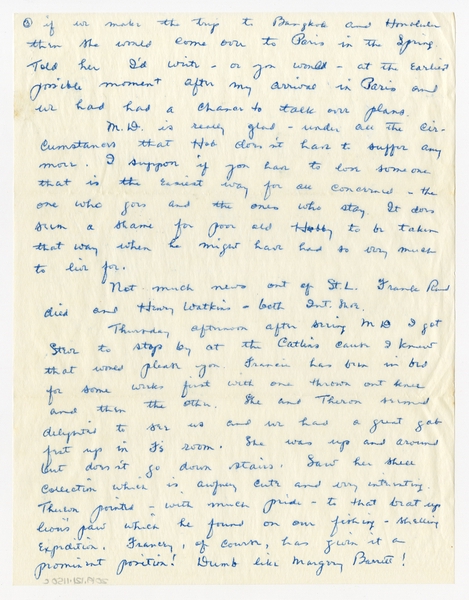 ⑥ if we make the trip to Bangkok and Honolulu
then she would come over to Paris in the Spring.
Told her I'd write - or you would - at the Earliest
possible moment after my arrival in Paris and
we had had a chance to talk over plans.
M.D. is really glad - under all the cir-
cumstances that Hob doesn't have to suffer any
more. I suppose if you have to lose someone
that is the Easiest way for all concerned - the
one who goes and the ones who stay. It does
seem a shame for poor old Hobby to be taken
that way when he might have had so very much
to live for.
Not much news out of St. L. Frank
died and Henry Watkins - both Int. Shoe.
Thursday afternoon after seeing M D I got
Steve to stop by at the Catlins cause I knew
that would please you. Francis has been in bed
for some weeks first with one thrown out knee
and then the other. She and Theron seemed
delighted to see us and we had a great gab
fest up in F's room. She was up and around
but doesn't go down stairs. Saw her shell
Collection which is awfully cute and very interesting.
Theron pointed - with much pride - to that beat up
lion's paw which he found on our fishing - shelling
Expedition. Francey, of course, has given it a
prominent position! Dumb like Margery Barrett!